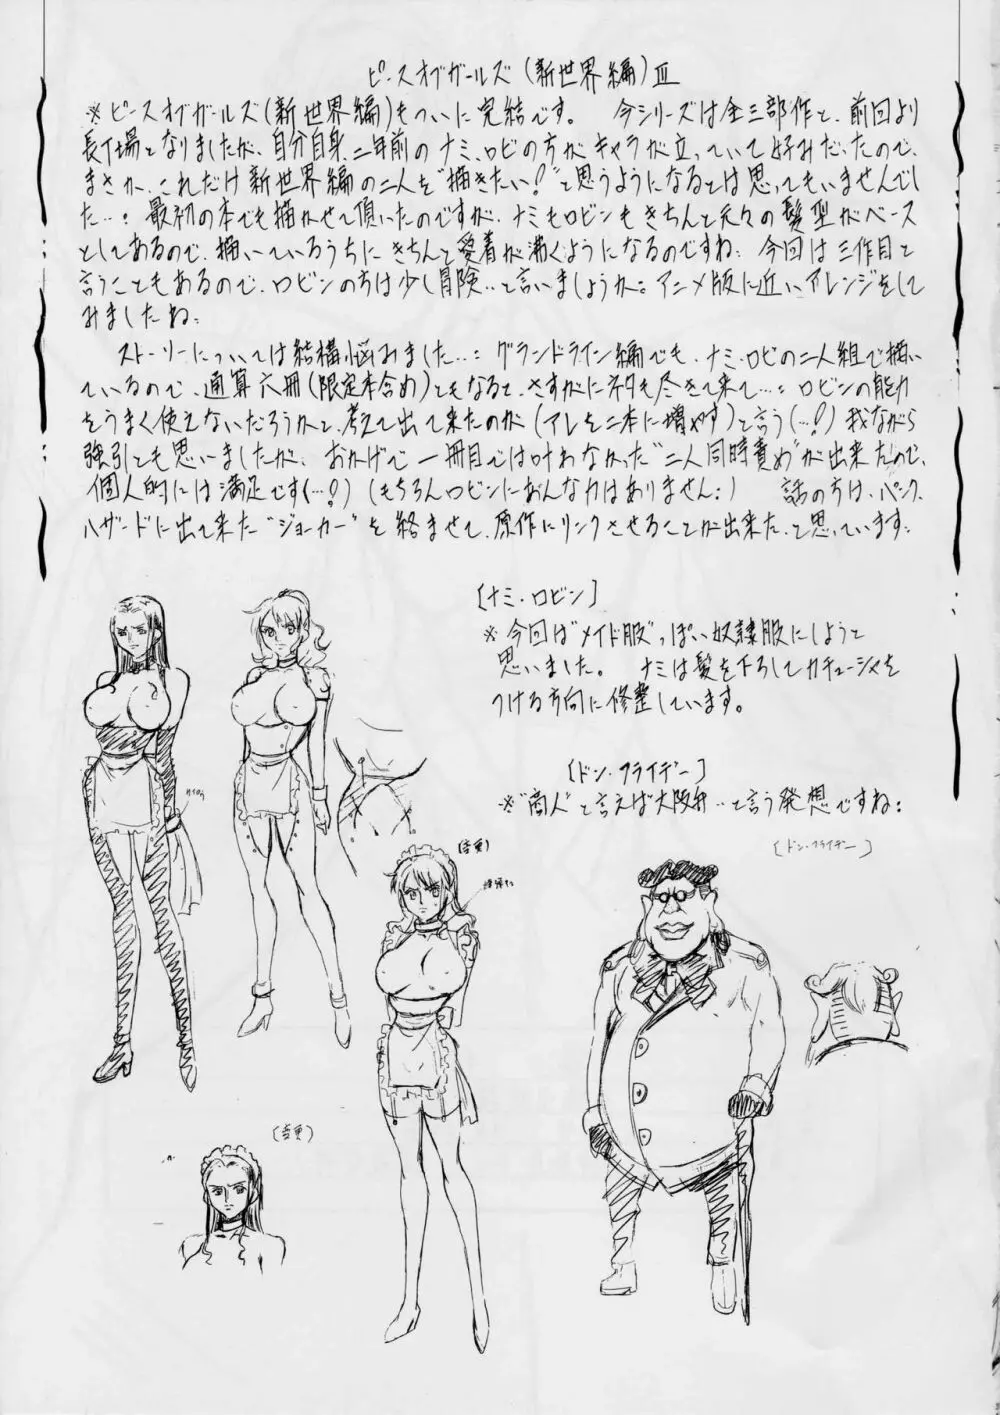 ピースオブガールズ(新世界編)Ⅲ
※ピースオブガールズ(新世界編)もついに完結です。 今シリーズは全三部作と、前回より
長丁場となりましたが、自分自身、二年前のナミ、ロビの方がキャラが立っていて好みだったので、
まさか、これだけ新世界編の二人を“描きたい!”と思うようになるとは思ってもいませんでし
た…: 最初の本でも描かせて頂いたのですが、ナミもロビンもきちんと元々の髪型がベース
としてあるので、描いているうちにきちんと愛着が沸くようになるのですね: 今回は三作目と
言うこともあるので、ロビンの方は少し冒険…と言いましょうか。アニメ版に近いアレンジをして
みましたね:
ストーリーについては結構悩みました…: グランドライン編でも、ナミ・ロビの二人組で描い
ているので、通算六冊(限定本含め)ともなると、さすがにネタも尽きて来て…: ロビンの能力
をうまく使えないだろうかと、考えて出て来たのが(アレを二本に増やす)と言う(…!)我ながら
強引とも思いましたが、おかげで一冊目では叶わなかった“二人同時責め”が出来たので、
個人的には満足です(…!)(もちろんロビンにあんな力はありません:) 話の方は、パンク、
ハザードに出て来た“ジョーカー”を絡ませて、原作にリンクさせることが出来た、と思っています:
[ナミ・ロビン]
※今回は“メイド服”っぽい奴隷服にしようと
思いました。 ナミは髪を下ろしてカチューシャを
つける方向に修整しています。
[ドン・フライデー]
※“商人”と言えば大阪弁…と言う発想ですね:
[ドン・フライデー]
(変更)
(変更)